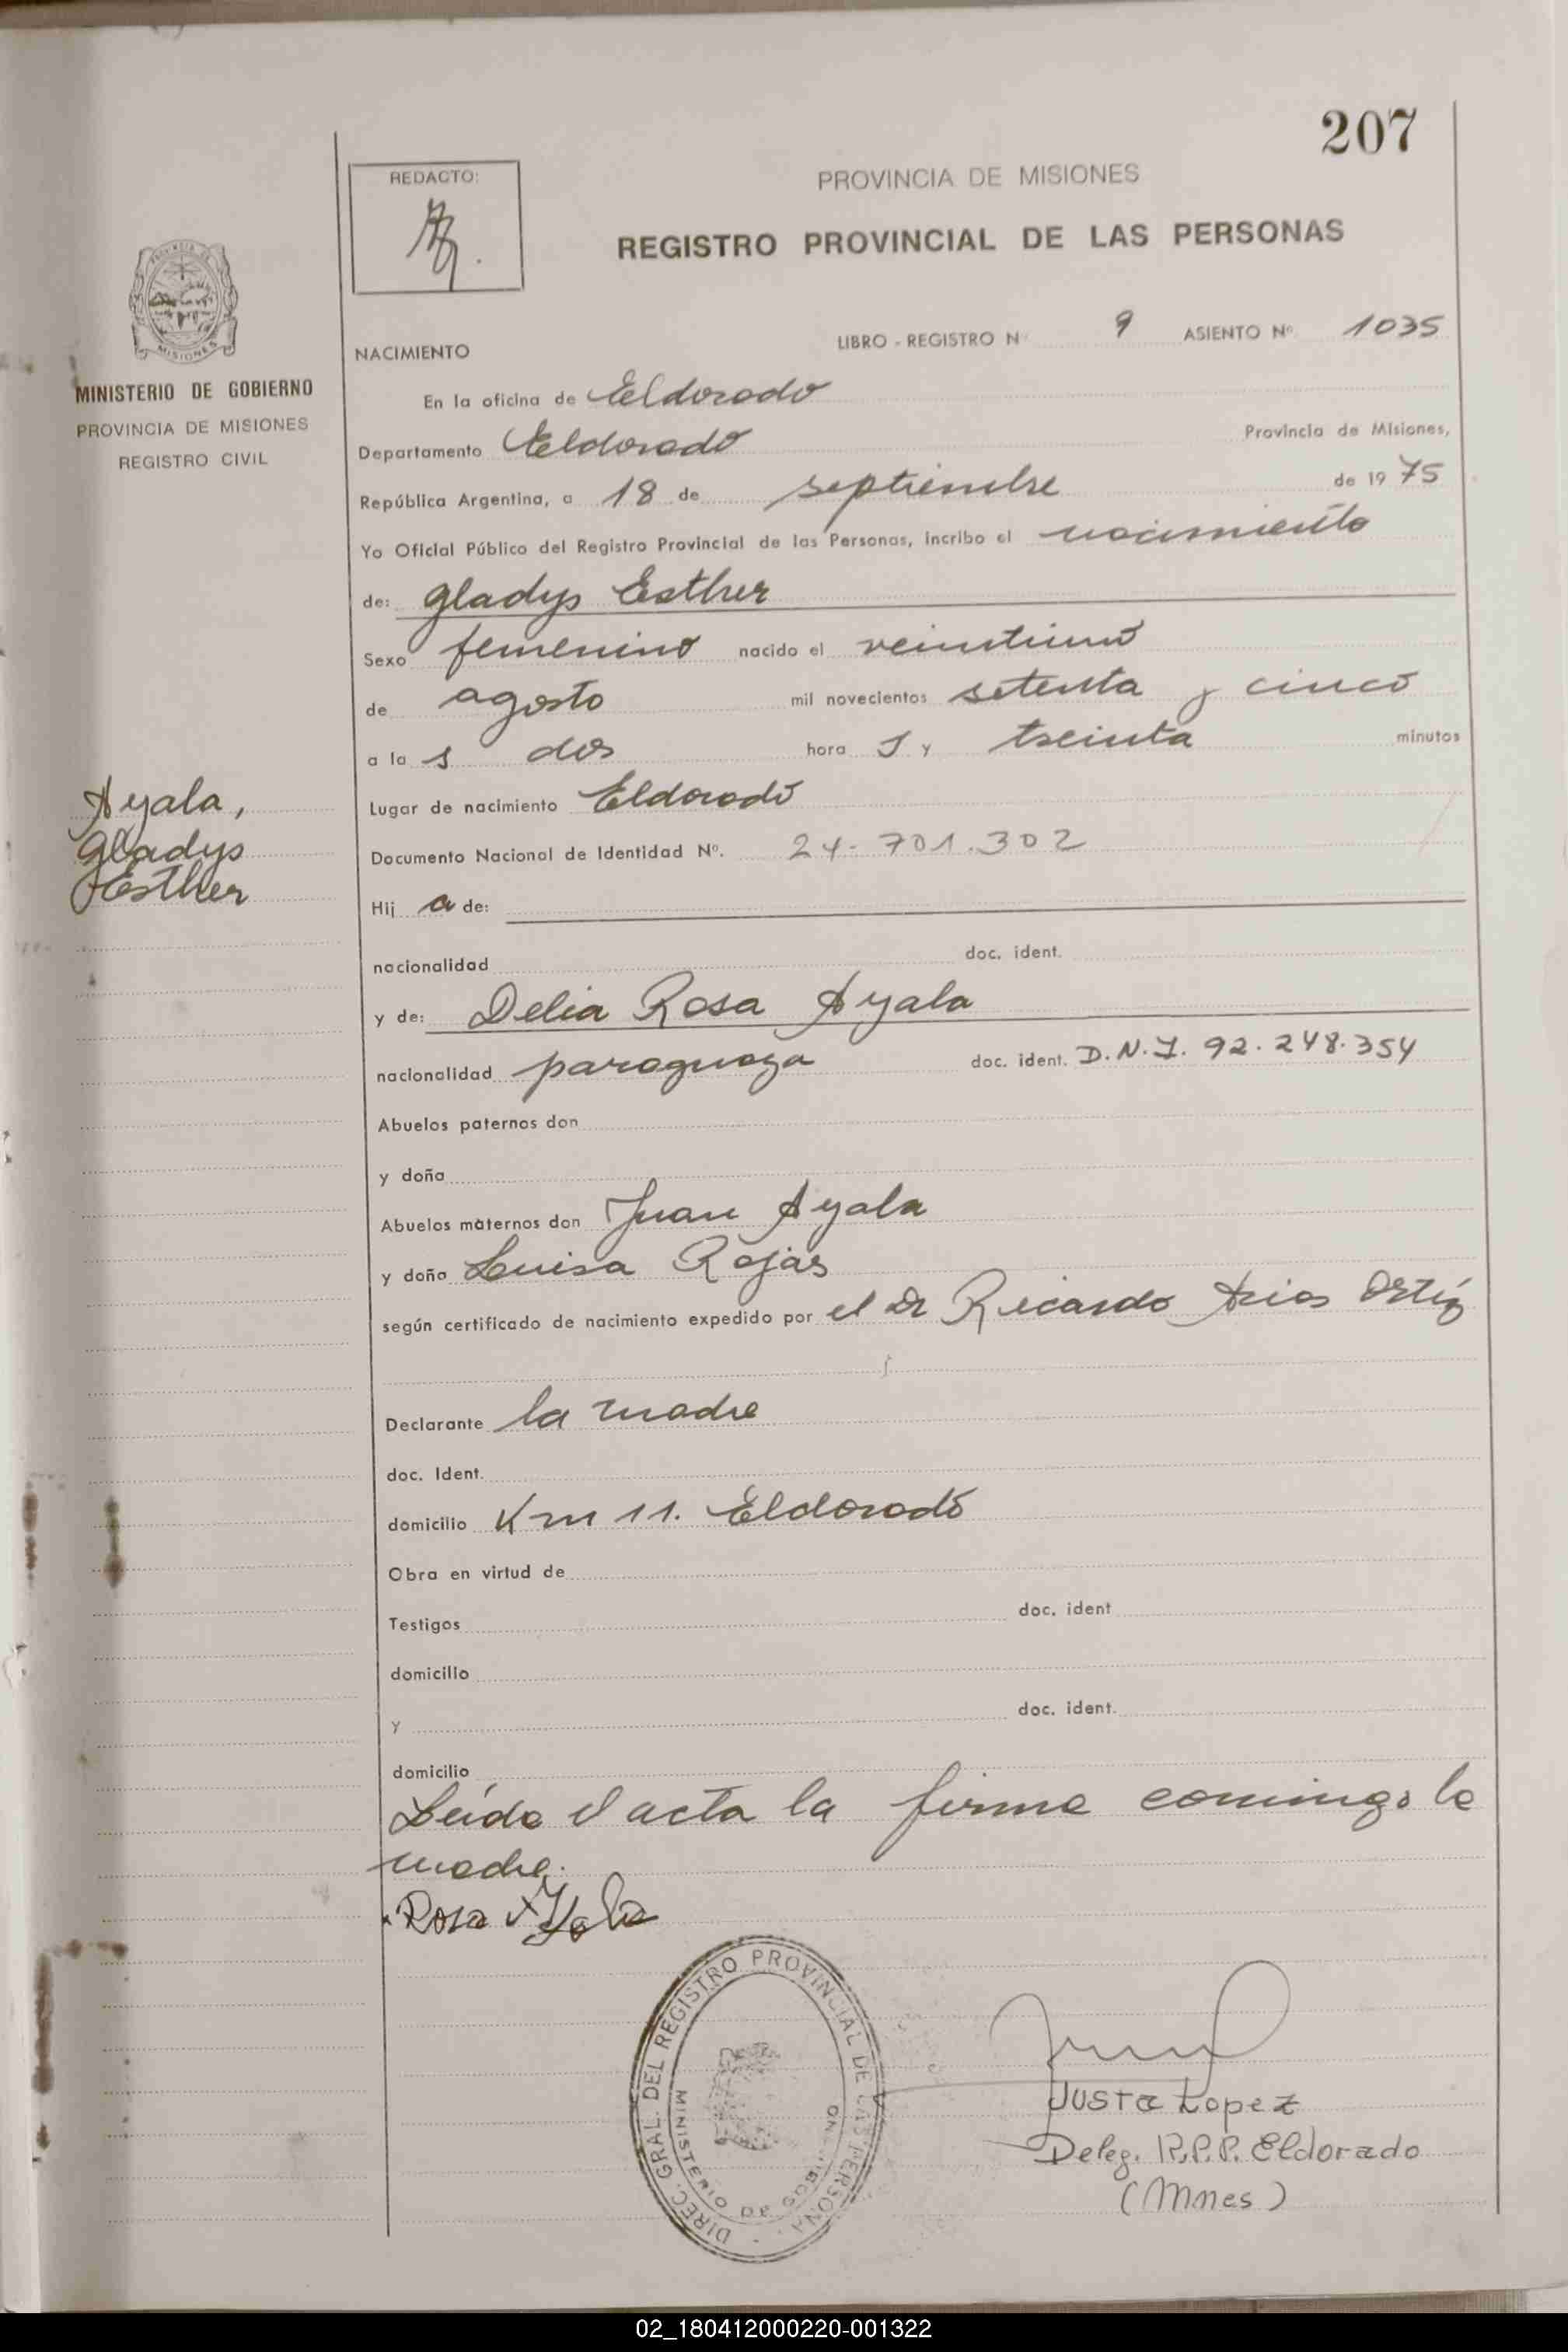 207
REDACTO:
PROVINCIA DE MISIONES
REGISTRO PROVINCIAL DE LAS PERSONAS
MISIONES
MINISTERIO DE GOBIERNO
PROVINCIA DE MISIONES
REGISTRO CIVIL
NACIMIENTO LIBRO - REGISTRO N° 9 ASIENTO Nº 1035
En la oficina de Eldorado
Departamento Eldorado Provincia de Misiones,
República Argentina, a 18 de septiembre de 1975
Yo Oficial Público del Registro Provincial de las Personas, incribo el nacimiento
de: Gladys Esther
Sexo femenino nacido el veintiuno
de agosto mil novecientos setenta y cinco
a la s dos hora s y treinta minutos
Ayala,
Gladys
Esther
Lugar de nacimiento Eldorado
Documento Nacional de Identidad Nº. 24.701.302
Hij a de:
nacionalidad doc. ident.
y de: Delia Rosa Ayala
nacionalidad paraguaya doc. ident. D.N.I. 92.248.354
Abuelos paternos don
y doña
Abuelos maternos don Juan Ayala
y doña Luisa Rojas
según certificado de nacimiento expedido por el Dr Ricardo Arios Ortíz
Declarante la madre
doc. Ident.
domicilio Km 11. Eldorado
Obra en virtud de
Testigos doc. ident
domicilio
y doc. ident.
domicilio
Leída el acta la firma conmigo la
madre.
Rosa Ayala
DIREC. GRAL. DEL REGISTRO PROVINCIAL DE LAS PERSONA
MINISTERIO DE GOBIERNO
Justa Lopez
Deleg. R.P.P. Eldorado
(Mnes)
02_180412000220-001322